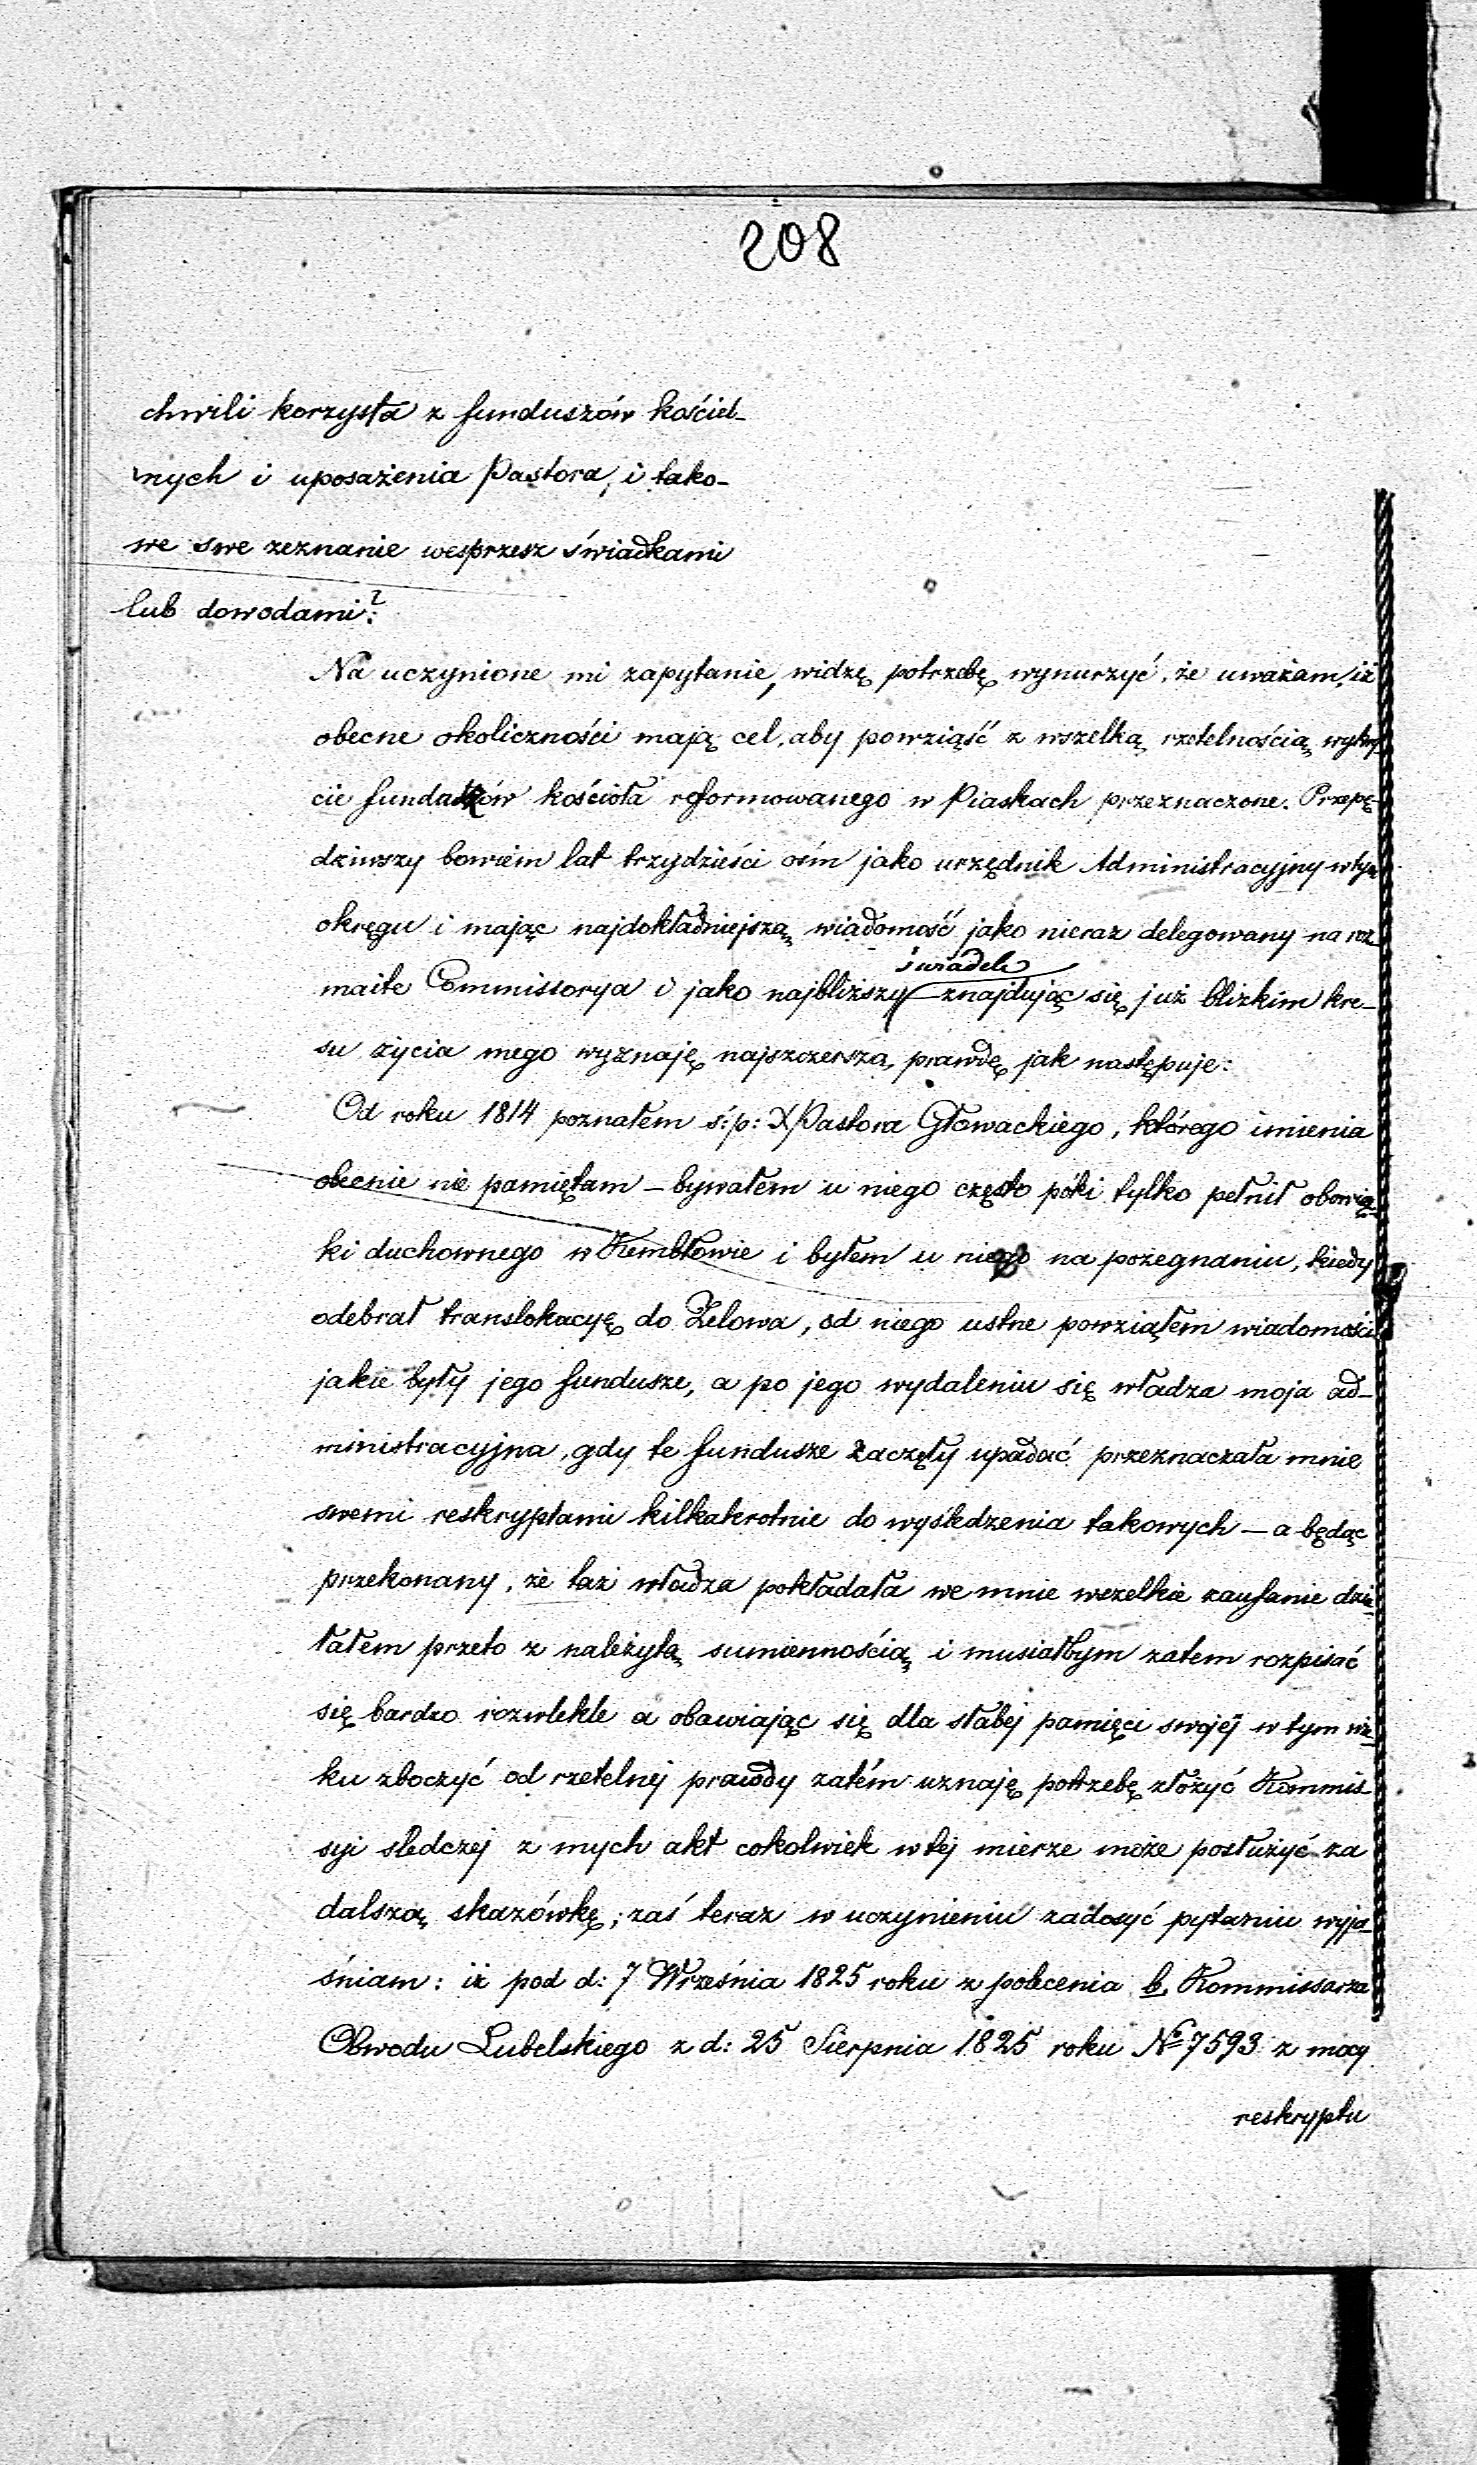 208
chwili korzysta z funduszów kościel-
nych i uposażenia Pastora, i tako-
we swe zeznanie wesprzesz świadkami
lub dowodami?
Na uczynione mi zapytanie, widzę potrzebę wynurzyć, że uważam, iż
obecne okoliczności mają cel, aby powziąść z wszelką rzetelnością wykry-
cie funduszów kościoła reformowanego w Piaskach przeznaczone. Przepę-
dziwszy bowiem lat trzydzieści ośm jako urzędnik Administracyjny w tym
okręgu i mając najdokładniejszą wiadomość jako nieraz delegowany na roz-
maite Commissorya i jako najbliższy świadek znajdując się już blizkim kre-
su życia mego wyznaję najszczerszą prawdę jak następuje:
Od roku 1814 poznałem ś: p: X Pastora Głowackiego, którego imienia
obecnie nie pamiętam – bywałem u niego często póki tylko pełnił obowią-
ki duchownego w Kembłowie i byłem u niego na pożegnaniu, kiedy
odebrał translokacyę do Zelowa, od niego ustne powziąłem wiadomości
jakie były jego fundusze, a po jego wydaleniu się władza moja ad-
ministracyjna, gdy te fundusze zaczęły upadać przeznaczała mnie
swemi reskryptami kilkakrotnie do wyśledzenia takowych – a będąc
przekonany, że taż władza pokładała we mnie wszelkie zaufanie dzia-
łałem przeto z należytą sumiennością i musiałbym zatem rozpisać
się bardzo rozwlekle a obawiając się dla słabej pamięci swojéj w tym wie-
ku zboczyć od rzetelnej prawdy zatém uznaję potrzebę złożyć Kommis
syi śledczej z mych akt cokolwiek w tej mierze może posłużyć za
dalszą skazówkę; zaś teraz w uczynieniu zadosyć pytaniu wyja-
śniam: iż pod d: 7 Września 1825 roku z polecenia b. Kommissarza
Obwodu Lubelskiego z d: 25 Sierpnia 1825 roku № 7593 z mocy
reskryptu